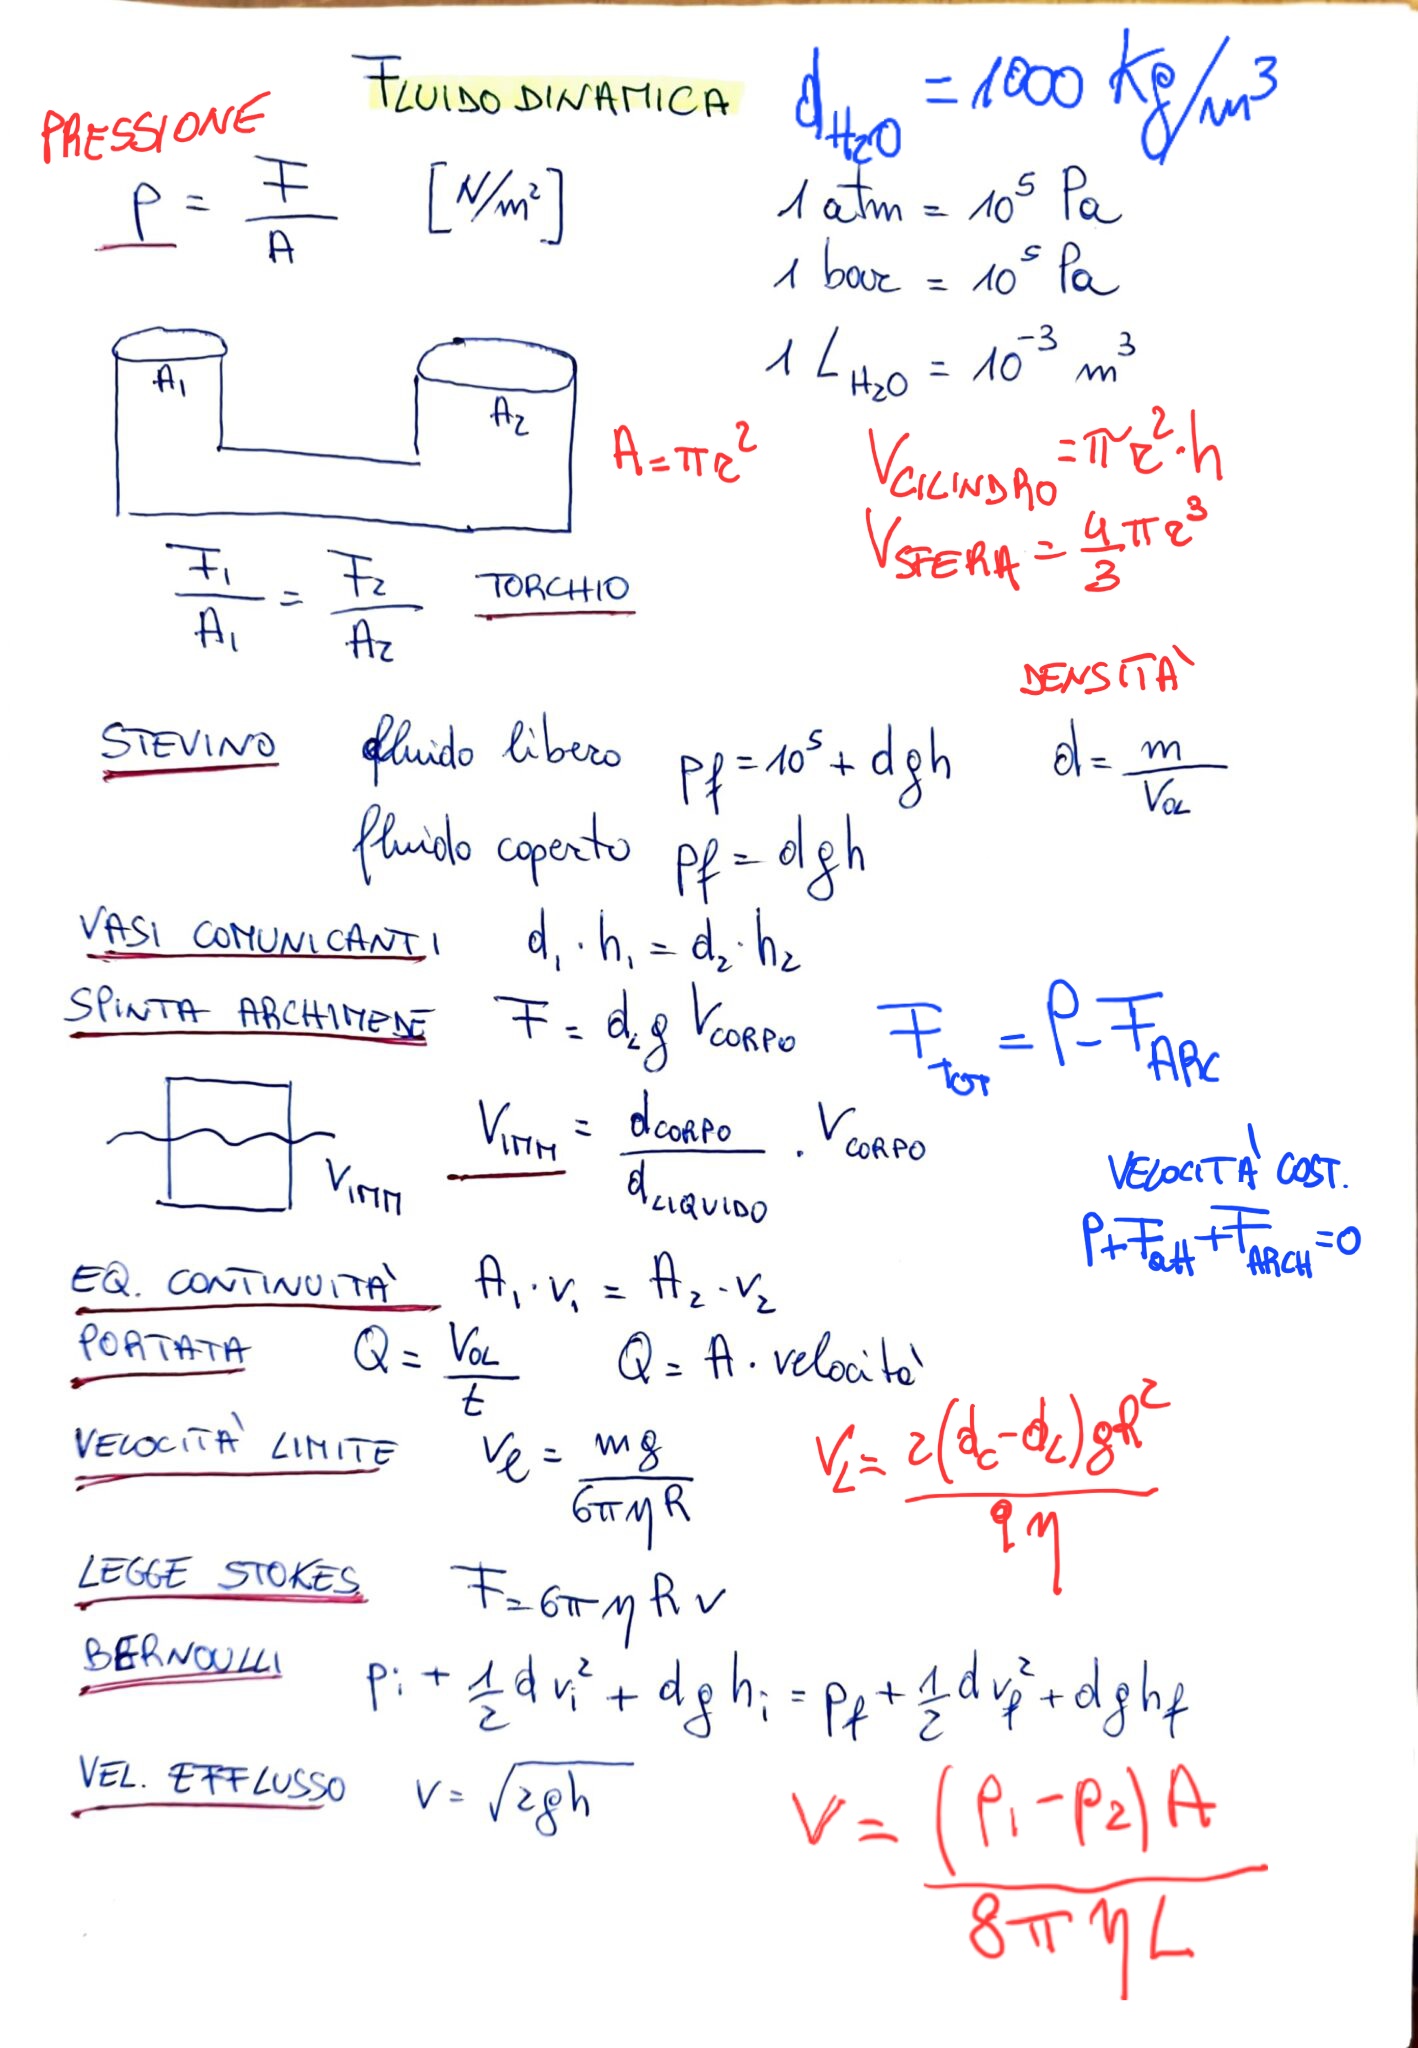 FLUIDODINAMICA
d_H2O = 1000 Kg/m³
PRESSIONE
p = F/A [N/m²]
1 atm = 10⁵ Pa
1 bar = 10⁵ Pa
1 L_H2O = 10⁻³ m³
A₁
A₂
A = πr²
V_CILINDRO = πr²·h
V_SFERA = 4/3 πr³
F₁/A₁ = F₂/A₂ TORCHIO
DENSITÀ
d = m/VOL
STEVINO fluido libero pf = 10⁵ + dgh
fluido coperto pf = dgh
VASI COMUNICANTI d₁·h₁ = d₂·h₂
SPINTA ARCHIMEDE F = d_L g V_CORPO
F_TOT = P - F_ARC
V_IMM
V_IMM = d_CORPO/d_LIQUIDO · V_CORPO
VELOCITÀ COST.
P + F_att + F_ARCH = 0
EQ. CONTINUITÀ A₁·v₁ = A₂·v₂
PORTATA Q = VOL/t Q = A · velocità
VELOCITÀ LIMITE vℓ = mg/6πηR
V_L = 2(d_c - d_L)gR²/9η
LEGGE STOKES F = 6πηRv
BERNOULLI pi + 1/2 d vi² + dghi = pf + 1/2 d vf² + dghf
VEL. EFFLUSSO v = √2gh
V = (P₁ - P₂)A/8πηL